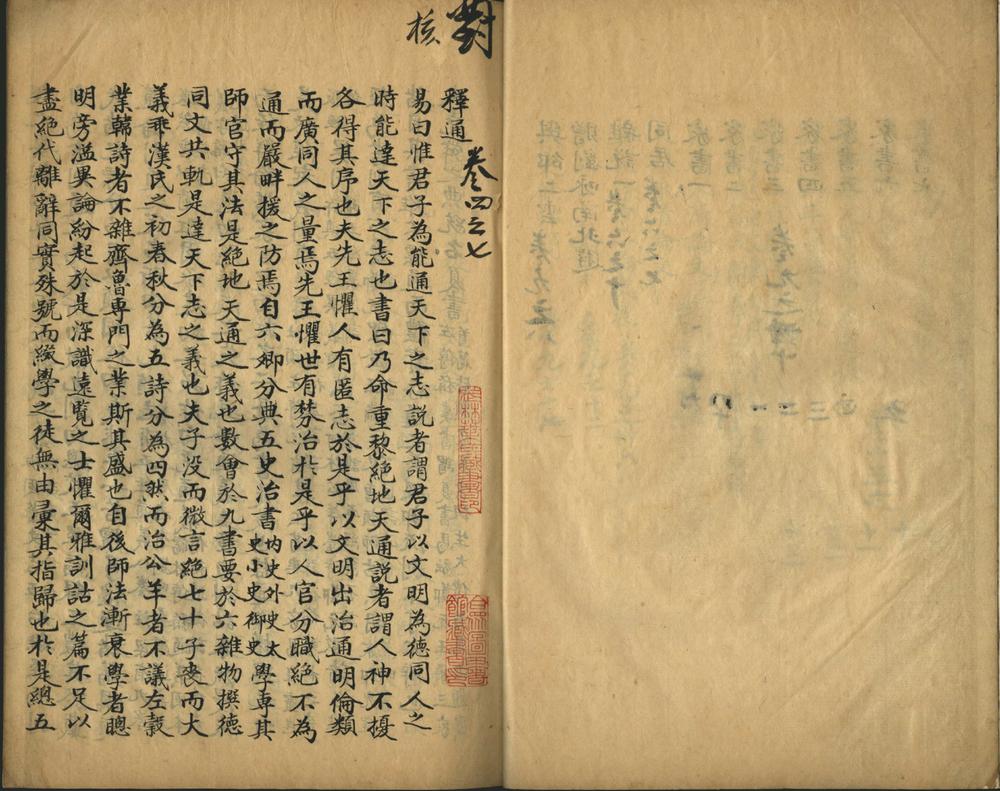 對
核
釋通 卷四之七
易曰惟君子為能通天下之志說者謂君子以文明為德同人之
時能達天下之志也書曰乃命重黎絕地天通說者謂人神不擾
各得其序也夫先王懼人有匿志於是乎以文明出治通明倫類
而廣同人之量焉先王懼世有棼治於是乎以人官分職絕不為
通而嚴畔援之防焉自六卿分典五史治書內史外史太史小史御史學專其
師官守其法是絕地天通之義也數會於九書要於六雜物撰德
同文共軌是達天下志之義也夫子没而微言絕七十子喪而大
義乖漢氏之初春秋分為五詩分為四然而治公羊者不議左穀
業韓詩者不雜齊魯專門之業斯其盛也自後師法漸衰學者聰
明旁溢異論紛起於是深識遠覽之士懼爾雅訓詁之篇不足以
盡絕代離辭同實殊號而綴學之徒無由彚其指歸也於是總五